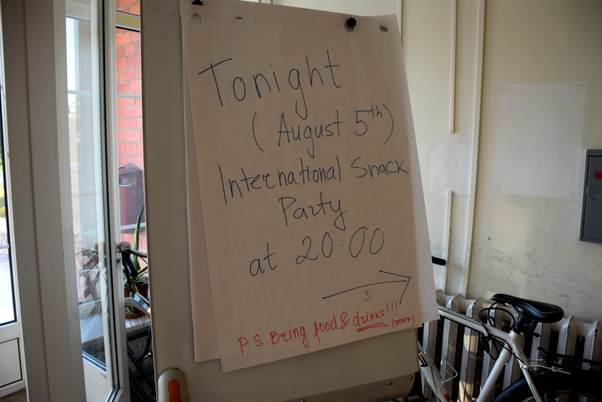 Tonight
(August 5th)
International Snack
Party
at 20:00
P.S. Bring food & drinks!!!